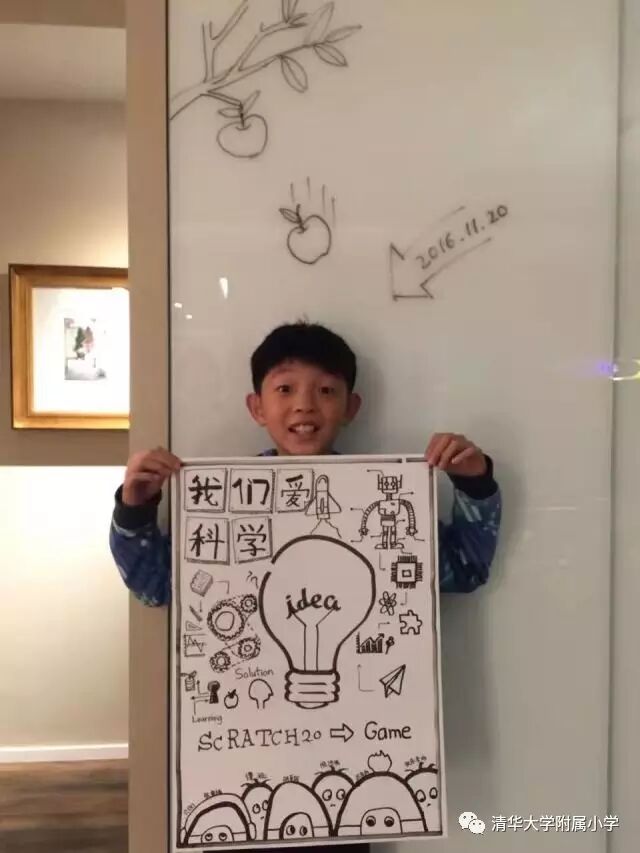 2016.11.20
我们爱
科学
idea
Solution
Learning
SCRATCH20 ⇨ Game
清华大学附属小学